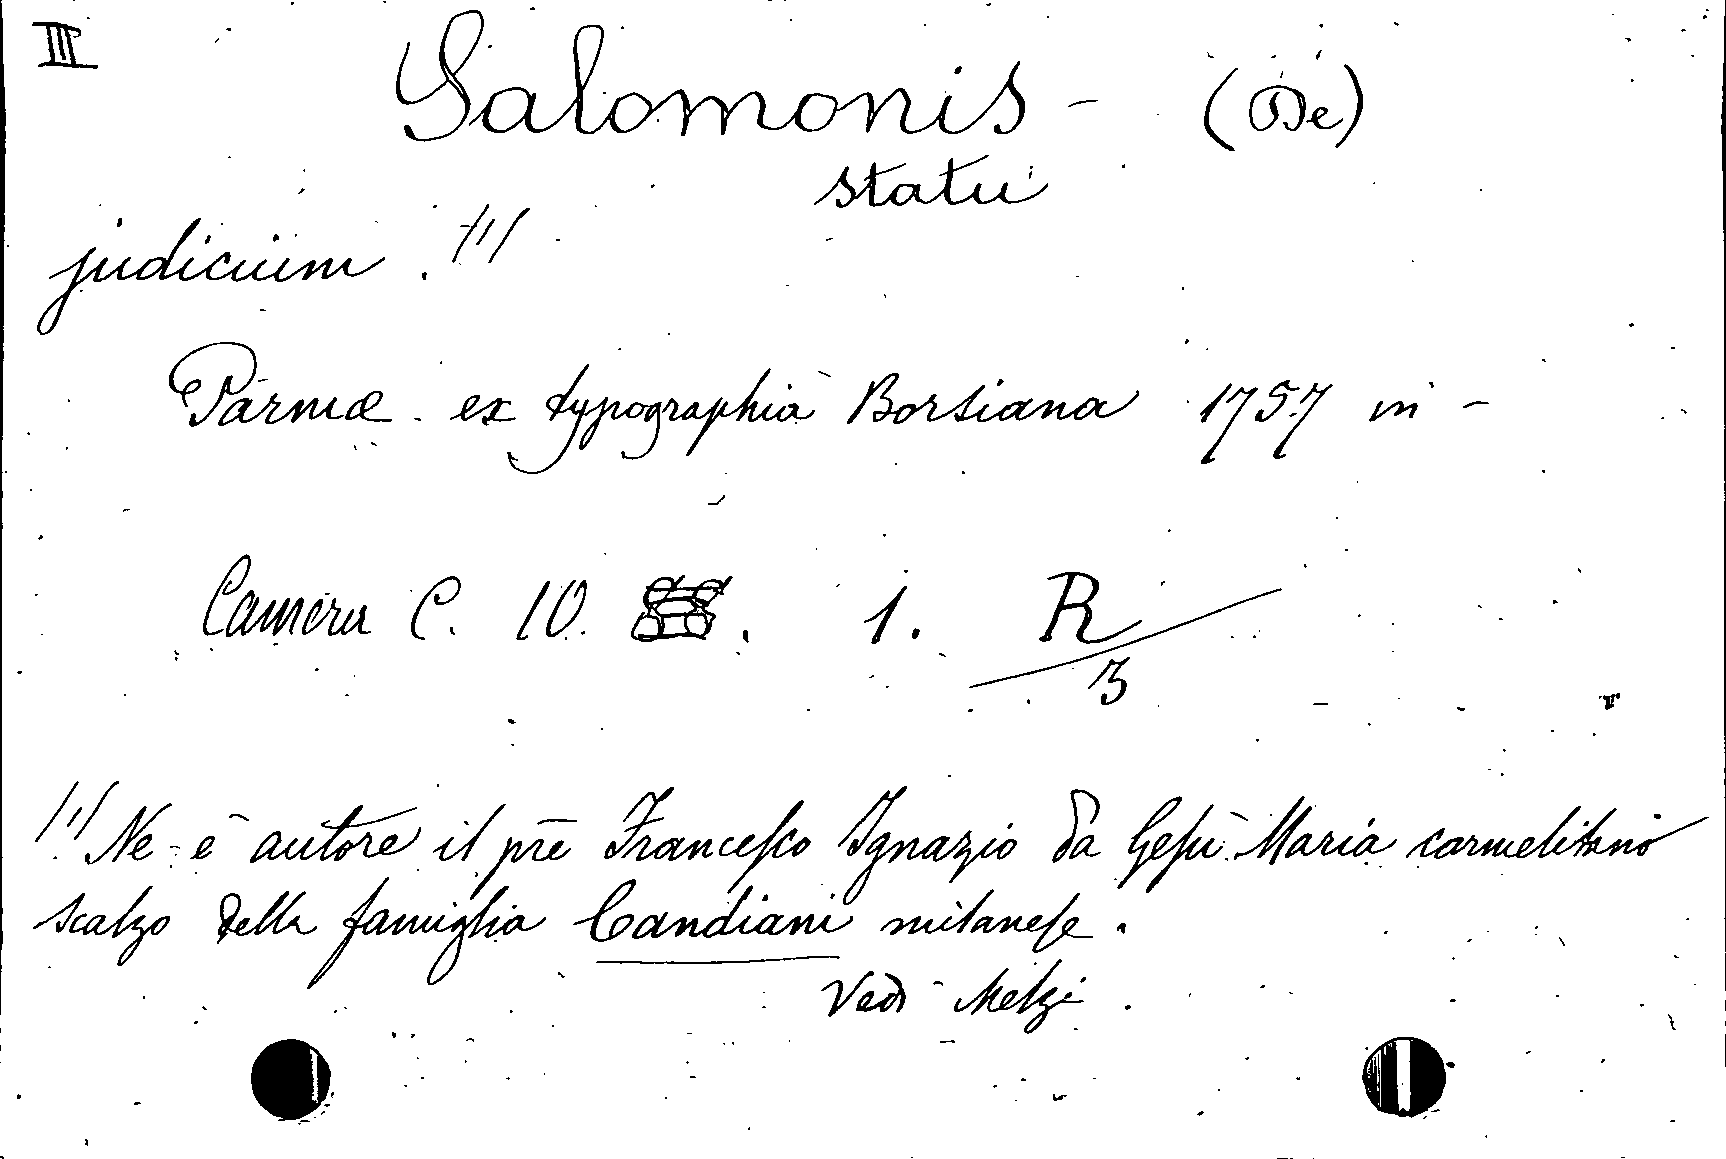 III
Salomonis - (De)
statu
judicium. (1)
Parmæ ex typographia Borsiana 1757 in -
Camera C. 10. . 1. R/3
(1) Ne è autore il pre Francesco Ignazio da Gesù Maria carmelitano
scalzo della famiglia Candiani milanese.
Vedi Melzi.